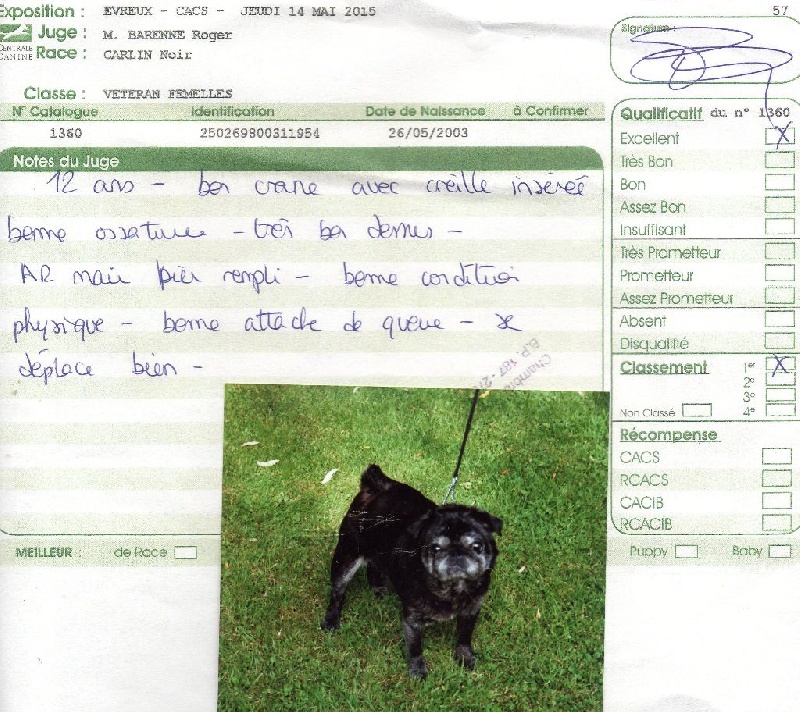 Exposition : EVREUX - CACS - JEUDI 14 MAI 2015
57
Juge : M. BARENNE Roger
Signature :
CENTRALE CANINE
Race : CARLIN Noir
Classe : VETERAN FEMELLES
N° Catalogue Identification Date de Naissance à Confirmer
1360 250269800311954 26/05/2003
Notes du Juge
12 ans - bon crane avec oreille insérée
bonne ossature - très bon dessus -
AR mais bien rempli - bonne condition
physique - bonne attache de queue - se
déplace bien -
Chambre
B.P. 187 - 2
Qualificatif du n° 1360
Excellent X
Très Bon
Bon
Assez Bon
Insuffisant
Très Prometteur
Prometteur
Assez Prometteur
Absent
Disqualifié
Classement 1er X
2e
3e
Non Classé 4e
Récompense
CACS
RCACS
CACIB
RCACIB
MEILLEUR : de Race Puppy Baby